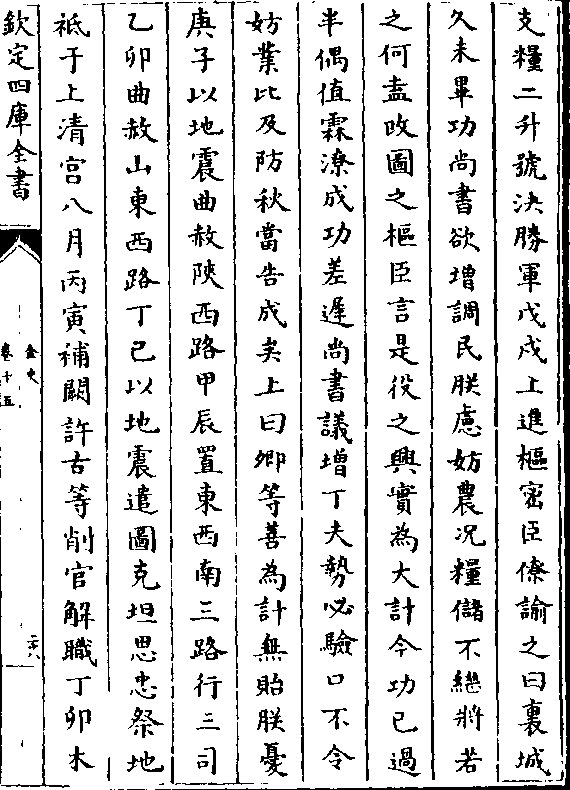 支糧二升號決勝軍戊戌上進樞密臣僚諭之曰裏城
久未畢功尚書欲增調民朕慮妨農况糧儲不繼將若
之何盍改圖之樞臣言是役之興實為大計今功已過
半偶值霖潦成功差遲尚書議增丁夫勢必驗口不令
妨業比及防秋當告成矣上曰卿等善為計無貽朕憂
庚子以地震曲赦陜西路甲辰置東西南三路行三司
乙卯曲赦山東西路丁巳以地震遣圖克坦思忠祭地
祗于上清宫八月丙寅補闕許古等削官解職丁卯木
欽定四庫全書
金史
卷十五
二十八